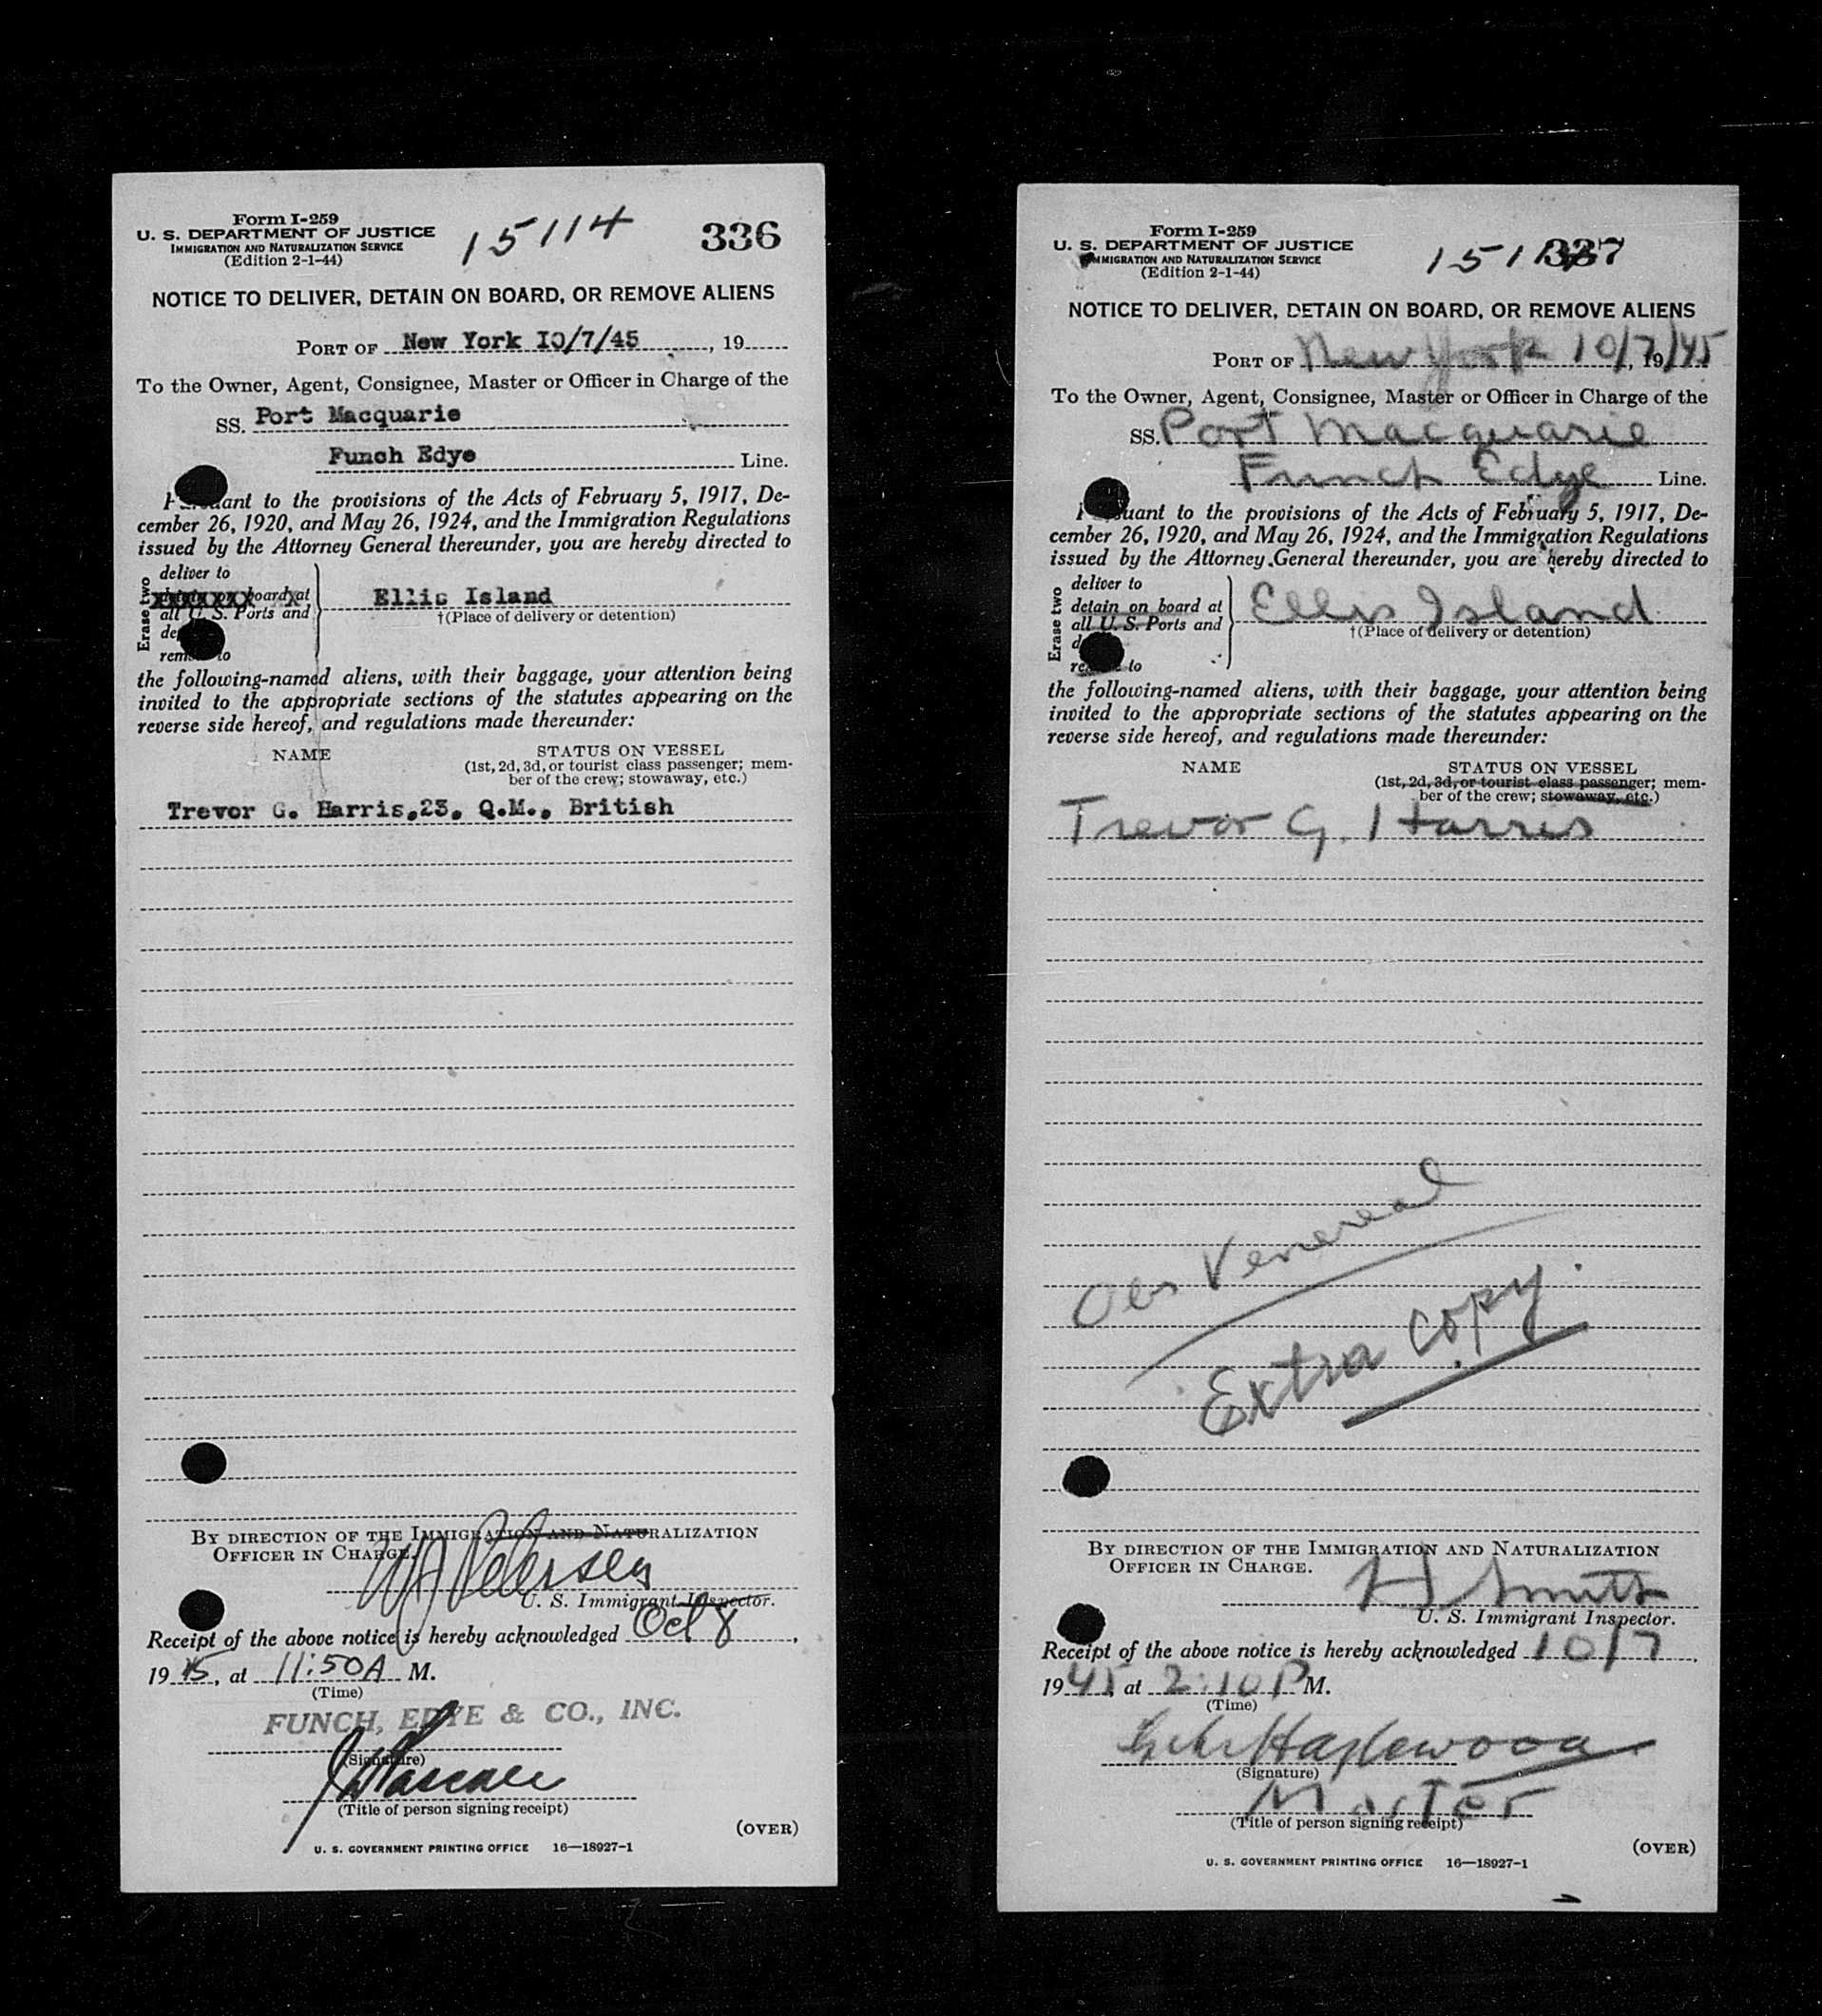 Form I-259
U. S. DEPARTMENT OF JUSTICE
IMMIGRATION AND NATURALIZATION SERVICE
(Edition 2-1-44)
15114
336
NOTICE TO DELIVER, DETAIN ON BOARD, OR REMOVE ALIENS
PORT OF New York 10/7/45, 19
To the Owner, Agent, Consignee, Master or Officer in Charge of the
SS. Port Macquarie
Funch Edye Line.
ant to the provisions of the Acts of February 5, 1917, De-
cember 26, 1920, and May 26, 1924, and the Immigration Regulations
issued by the Attorney General thereunder, you are hereby directed to
Erase two
deliver to
detain on board at
all U. S. Ports and
to
Ellis Island
†(Place of delivery or detention)
the following-named aliens, with their baggage, your attention being
invited to the appropriate sections of the statutes appearing on the
reverse side hereof, and regulations made thereunder:
NAME
STATUS ON VESSEL
(1st, 2d, 3d, or tourist class passenger; mem-
ber of the crew; stowaway, etc.)
Trevor G. Harris,23, Q.M., British
BY DIRECTION OF THE IMMIGRATION AND NATURALIZATION
OFFICER IN CHARGE.
Petersen
U. S. Immigrant Inspector.
Receipt of the above notice is hereby acknowledged Oct 8,
1945, at 11:50A M.
(Time)
FUNCH, EDYE & CO., INC.
(Signature)
(Title of person signing receipt)
(OVER)
U. S. GOVERNMENT PRINTING OFFICE 16—18927-1
Form I-259
U. S. DEPARTMENT OF JUSTICE
IMMIGRATION AND NATURALIZATION SERVICE
(Edition 2-1-44)
337
NOTICE TO DELIVER, DETAIN ON BOARD, OR REMOVE ALIENS
PORT OF New York 10/7, 19/45
To the Owner, Agent, Consignee, Master or Officer in Charge of the
SS. Port Macquarie
Funch Edye Line.
uant to the provisions of the Acts of February 5, 1917, De-
cember 26, 1920, and May 26, 1924, and the Immigration Regulations
issued by the Attorney General thereunder, you are hereby directed to
Erase two
deliver to
detain on board at
all U. S. Ports and
to
Ellis Island
†(Place of delivery or detention)
the following-named aliens, with their baggage, your attention being
invited to the appropriate sections of the statutes appearing on the
reverse side hereof, and regulations made thereunder:
NAME
STATUS ON VESSEL
(1st, 2d, 3d, or tourist class passenger; mem-
ber of the crew; stowaway, etc.)
Trevor G. Harris
Obs Venereal
Extra copy.
BY DIRECTION OF THE IMMIGRATION AND NATURALIZATION
OFFICER IN CHARGE.
H Smith
U. S. Immigrant Inspector.
Receipt of the above notice is hereby acknowledged 10/7,
1945 at 2:10 P M.
(Time)
Hazlewood
(Signature)
Master
(Title of person signing receipt)
(OVER)
U. S. GOVERNMENT PRINTING OFFICE 16—18927-1